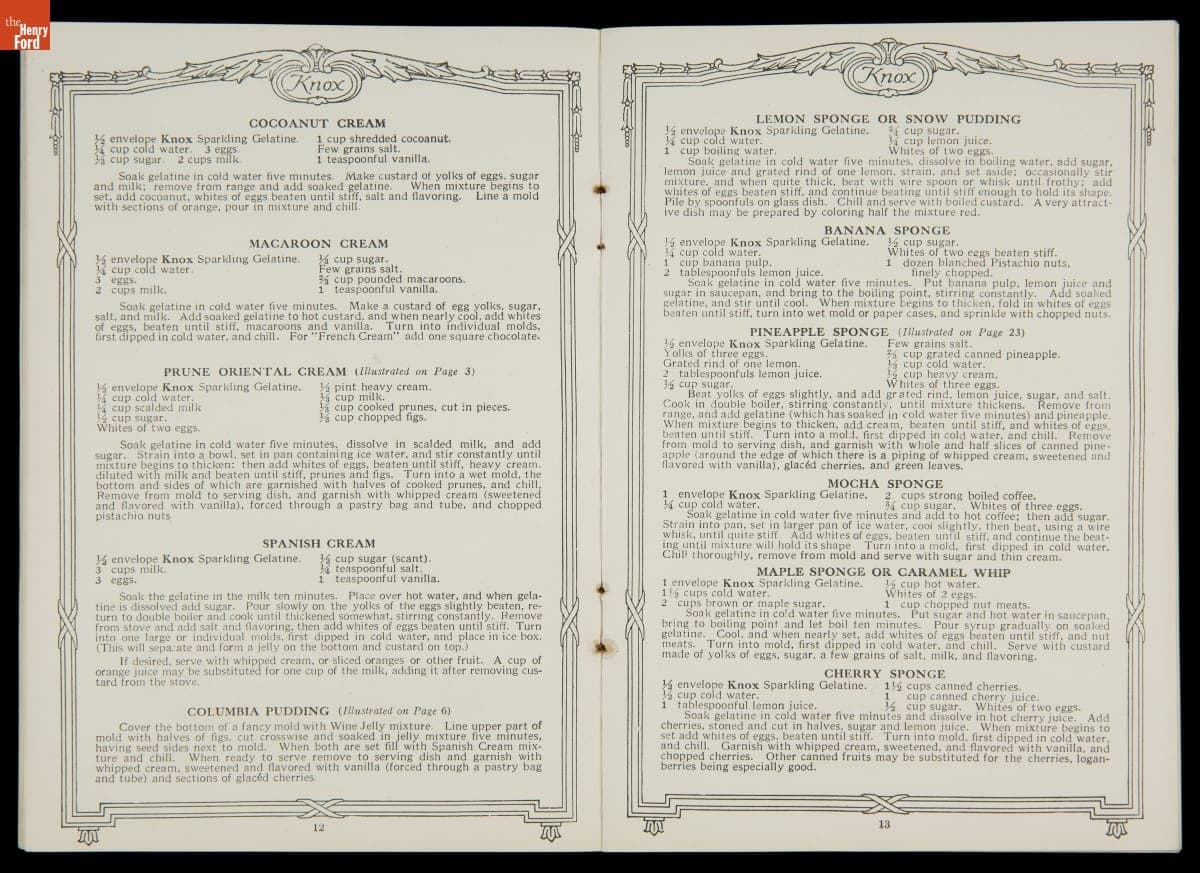 the
Henry
Ford
Knox
COCOANUT CREAM
½ envelope Knox Sparkling Gelatine. 1 cup shredded cocoanut.
¼ cup cold water. 3 eggs. Few grains salt.
⅓ cup sugar. 2 cups milk. 1 teaspoonful vanilla.
Soak gelatine in cold water five minutes. Make custard of yolks of eggs, sugar
and milk; remove from range and add soaked gelatine. When mixture begins to
set, add cocoanut, whites of eggs beaten until stiff, salt and flavoring. Line a mold
with sections of orange, pour in mixture and chill.
MACAROON CREAM
½ envelope Knox Sparkling Gelatine. ⅓ cup sugar.
¼ cup cold water. Few grains salt.
3 eggs. ⅔ cup pounded macaroons.
2 cups milk. 1 teaspoonful vanilla.
Soak gelatine in cold water five minutes. Make a custard of egg yolks, sugar,
salt, and milk. Add soaked gelatine to hot custard, and when nearly cool, add whites
of eggs, beaten until stiff, macaroons and vanilla. Turn into individual molds,
first dipped in cold water, and chill. For "French Cream" add one square chocolate.
PRUNE ORIENTAL CREAM (Illustrated on Page 3)
½ envelope Knox Sparkling Gelatine. ½ pint heavy cream.
¼ cup cold water. ⅓ cup milk.
¼ cup scalded milk ⅓ cup cooked prunes, cut in pieces.
½ cup sugar. ⅓ cup chopped figs.
Whites of two eggs.
Soak gelatine in cold water five minutes, dissolve in scalded milk, and add
sugar. Strain into a bowl, set in pan containing ice water, and stir constantly until
mixture begins to thicken: then add whites of eggs, beaten until stiff, heavy cream,
diluted with milk and beaten until stiff, prunes and figs. Turn into a wet mold, the
bottom and sides of which are garnished with halves of cooked prunes, and chill.
Remove from mold to serving dish, and garnish with whipped cream (sweetened
and flavored with vanilla), forced through a pastry bag and tube, and chopped
pistachio nuts
SPANISH CREAM
½ envelope Knox Sparkling Gelatine. ½ cup sugar (scant).
3 cups milk. ¼ teaspoonful salt.
3 eggs. 1 teaspoonful vanilla.
Soak the gelatine in the milk ten minutes. Place over hot water, and when gela-
tine is dissolved add sugar. Pour slowly on the yolks of the eggs slightly beaten, re-
turn to double boiler and cook until thickened somewhat, stirring constantly. Remove
from stove and add salt and flavoring, then add whites of eggs beaten until stiff. Turn
into one large or individual molds, first dipped in cold water, and place in ice box.
(This will separate and form a jelly on the bottom and custard on top.)
If desired, serve with whipped cream, or sliced oranges or other fruit. A cup of
orange juice may be substituted for one cup of the milk, adding it after removing cus-
tard from the stove.
COLUMBIA PUDDING (Illustrated on Page 6)
Cover the bottom of a fancy mold with Wine Jelly mixture. Line upper part of
mold with halves of figs, cut crosswise and soaked in jelly mixture five minutes,
having seed sides next to mold. When both are set fill with Spanish Cream mix-
ture and chill. When ready to serve remove to serving dish and garnish with
whipped cream, sweetened and flavored with vanilla (forced through a pastry bag
and tube) and sections of glacéd cherries.
12
Knox
LEMON SPONGE OR SNOW PUDDING
½ envelope Knox Sparkling Gelatine. ¾ cup sugar.
¼ cup cold water. ¼ cup lemon juice.
1 cup boiling water. Whites of two eggs.
Soak gelatine in cold water five minutes, dissolve in boiling water, add sugar,
lemon juice and grated rind of one lemon, strain, and set aside; occasionally stir
mixture, and when quite thick, beat with wire spoon or whisk until frothy; add
whites of eggs beaten stiff, and continue beating until stiff enough to hold its shape.
Pile by spoonfuls on glass dish. Chill and serve with boiled custard. A very attract-
ive dish may be prepared by coloring half the mixture red.
BANANA SPONGE
½ envelope Knox Sparkling Gelatine. ½ cup sugar.
¼ cup cold water. Whites of two eggs beaten stiff.
1 cup banana pulp. 1 dozen blanched Pistachio nuts,
2 tablespoonfuls lemon juice. finely chopped.
Soak gelatine in cold water five minutes. Put banana pulp, lemon juice and
sugar in saucepan, and bring to the boiling point, stirring constantly. Add soaked
gelatine, and stir until cool. When mixture begins to thicken, fold in whites of eggs
beaten until stiff, turn into wet mold or paper cases, and sprinkle with chopped nuts.
PINEAPPLE SPONGE (Illustrated on Page 23)
½ envelope Knox Sparkling Gelatine. Few grains salt.
Yolks of three eggs. ⅔ cup grated canned pineapple.
Grated rind of one lemon. ⅓ cup cold water.
2 tablespoonfuls lemon juice. ½ cup heavy cream.
½ cup sugar. Whites of three eggs.
Beat yolks of eggs slightly, and add grated rind, lemon juice, sugar, and salt.
Cook in double boiler, stirring constantly, until mixture thickens. Remove from
range, and add gelatine (which has soaked in cold water five minutes) and pineapple.
When mixture begins to thicken, add cream, beaten until stiff, and whites of eggs,
beaten until stiff. Turn into a mold, first dipped in cold water, and chill. Remove
from mold to serving dish, and garnish with whole and half slices of canned pine-
apple (around the edge of which there is a piping of whipped cream, sweetened and
flavored with vanilla), glacéd cherries, and green leaves.
MOCHA SPONGE
1 envelope Knox Sparkling Gelatine. 2 cups strong boiled coffee.
¼ cup cold water. ¾ cup sugar. Whites of three eggs.
Soak gelatine in cold water five minutes and add to hot coffee; then add sugar.
Strain into pan, set in larger pan of ice water, cool slightly, then beat, using a wire
whisk, until quite stiff Add whites of eggs, beaten until stiff, and continue the beat-
ing until mixture will hold its shape Turn into a mold, first dipped in cold water.
Chill thoroughly, remove from mold and serve with sugar and thin cream.
MAPLE SPONGE OR CARAMEL WHIP
1 envelope Knox Sparkling Gelatine. ½ cup hot water.
1½ cups cold water. Whites of 2 eggs.
2 cups brown or maple sugar. 1 cup chopped nut meats.
Soak gelatine in cold water five minutes. Put sugar and hot water in saucepan,
bring to boiling point and let boil ten minutes. Pour syrup gradually on soaked
gelatine. Cool, and when nearly set, add whites of eggs beaten until stiff, and nut
meats. Turn into mold, first dipped in cold water, and chill. Serve with custard
made of yolks of eggs, sugar, a few grains of salt, milk, and flavoring.
CHERRY SPONGE
½ envelope Knox Sparkling Gelatine. 1½ cups canned cherries.
½ cup cold water. 1 cup canned cherry juice.
1 tablespoonful lemon juice. ½ cup sugar. Whites of two eggs.
Soak gelatine in cold water five minutes and dissolve in hot cherry juice. Add
cherries, stoned and cut in halves, sugar and lemon juice. When mixture begins to
set add whites of eggs, beaten until stiff. Turn into mold, first dipped in cold water,
and chill. Garnish with whipped cream, sweetened, and flavored with vanilla, and
chopped cherries. Other canned fruits may be substituted for the cherries, logan-
berries being especially good.
13